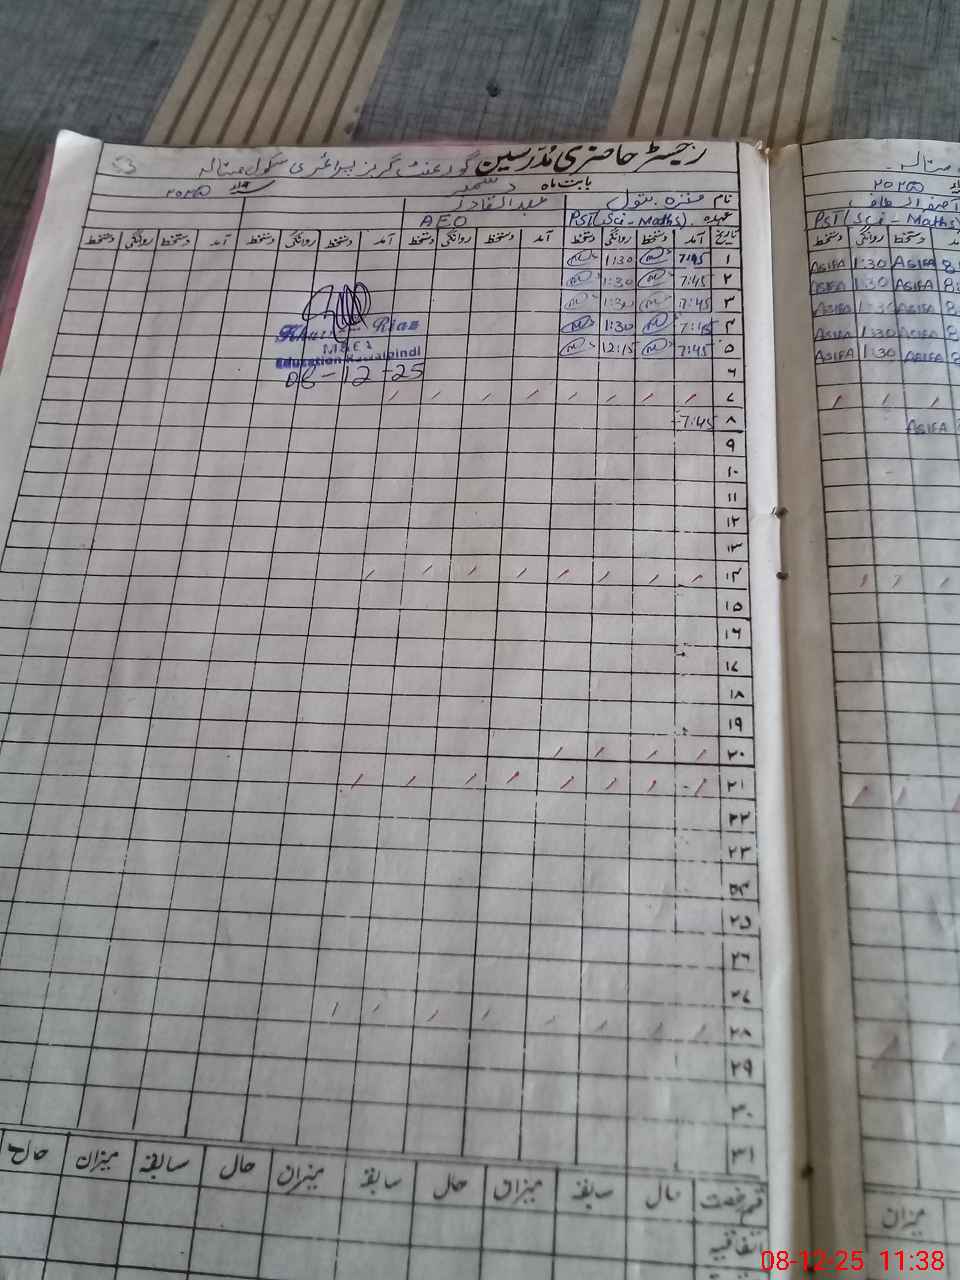 رجسٹر حاضری مدرسین گورنمنٹ گرلز پرائمری سکول مٹالہ
53
بابت ماہ دسمبر ۲۰۲۵
نام منزہ بتول عبدالقادر
عہدہ PST (Sci-Maths) AEO
تاریخ آمد دستخط روانگی دستخط آمد دستخط روانگی دستخط آمد دستخط روانگی دستخط آمد دستخط روانگی دستخط
۱ 7:45 1:30
۲ 7:45 1:30
۳ 7:45 1:30
۴ 7:45 1:30
۵ 7:45 12:15
۶
۷
۸ 7:45
۹
۱۰
۱۱
۱۲
۱۳
۱۴
۱۵
۱۶
۱۷
۱۸
۱۹
۲۰
۲۱
۲۲
۲۳
۲۴
۲۵
۲۶
۲۷
۲۸
۲۹
۳۰
۳۱
Riaz
M&EA
Education Rawalpindi
08-12-25
قسم رخصت حال سابقہ میزان حال سابقہ میزان حال سابقہ میزان حال
اتفاقیہ
۲۰۲۵
PST (Sci-Maths)
دستخط روانگی دستخط
ASIFA 1:30 ASIFA
ASIFA 1:30 ASIFA
ASIFA 1:30 ASIFA
ASIFA 1:30 ASIFA
ASIFA 1:30 ASIFA
ASIFA
میزان
08-12-25 11:38